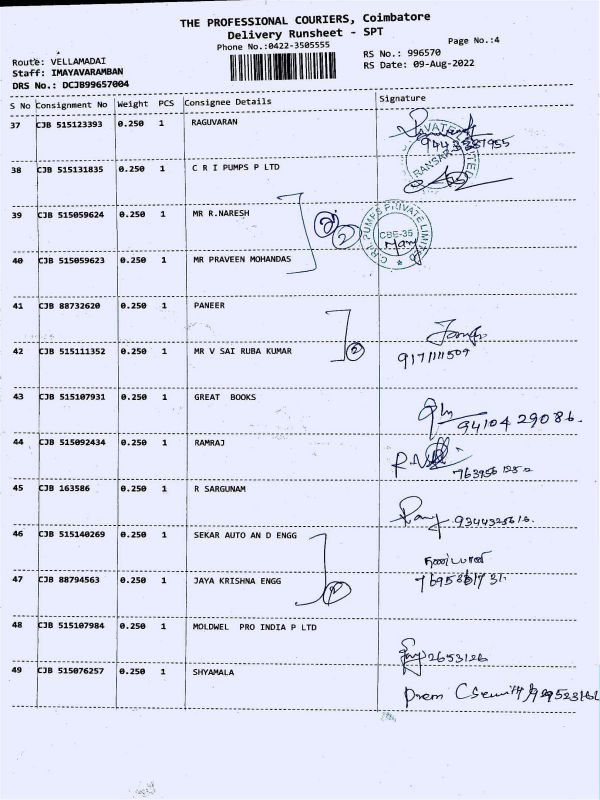 THE PROFESSIONAL COURIERS, Coimbatore
Delivery Runsheet - SPT
Phone No.:0422-3505555
Page No.:4
Route: VELLAMADAI
Staff: IMAYAVARAMBAN
DRS No.: DCJB99657004
RS No.: 996570
RS Date: 09-Aug-2022
S No Consignment No Weight PCS Consignee Details Signature
37 CJB 515123393 0.250 1 RAGUVARAN
38 CJB 515131835 0.250 1 C R I PUMPS P LTD
39 CJB 515059624 0.250 1 MR R.NARESH
2
C.R.I. PUMPS PRIVATE LIMITED
CBE-35
40 CJB 515059623 0.250 1 MR PRAVEEN MOHANDAS
41 CJB 88732620 0.250 1 PANEER
42 CJB 515111352 0.250 1 MR V SAI RUBA KUMAR
2
43 CJB 515107931 0.250 1 GREAT BOOKS
9410429086.
44 CJB 515092434 0.250 1 RAMRAJ
45 CJB 163586 0.250 1 R SARGUNAM
46 CJB 515140269 0.250 1 SEKAR AUTO AN D ENGG
47 CJB 88794563 0.250 1 JAYA KRISHNA ENGG
48 CJB 515107984 0.250 1 MOLDWEL PRO INDIA P LTD
2653126
49 CJB 515076257 0.250 1 SHYAMALA
Prem